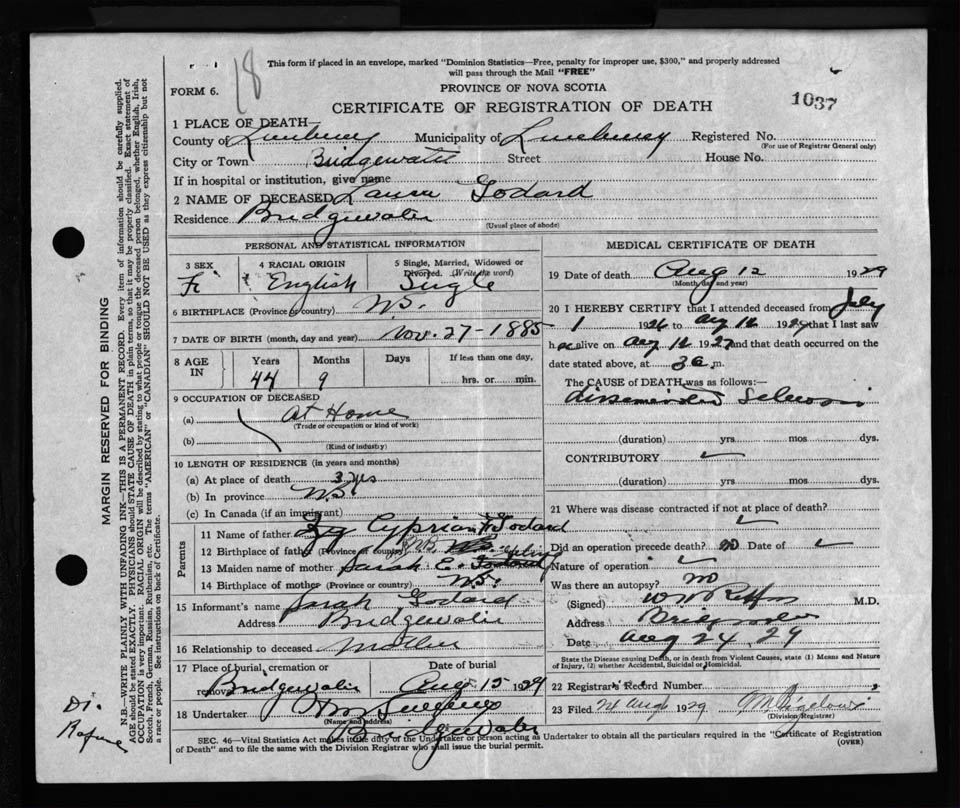 This form if placed in an envelope, marked "Dominion Statistics—Free, penalty for improper use, $300," and properly addressed
will pass through the Mail "FREE"
18
FORM 6.
PROVINCE OF NOVA SCOTIA
CERTIFICATE OF REGISTRATION OF DEATH
1037
1 PLACE OF DEATH—
County of Lunenburg Municipality of Lunenburg Registered No.
(For use of Registrar General only)
City or Town Bridgewater Street House No.
If in hospital or institution, give name
2 NAME OF DECEASED Laura Godard
Residence Bridgewater
(Usual place of abode)
PERSONAL AND STATISTICAL INFORMATION
3 SEX
4 RACIAL ORIGIN
5 Single, Married, Widowed or
Divorced. (Write the word)
Fe English Single
6 BIRTHPLACE (Province or country) N.S.
7 DATE OF BIRTH (month, day and year) Nov. 27-1885
8 AGE IN
Years Months Days If less than one day,
44 9 hrs. or min.
9 OCCUPATION OF DECEASED
(a) At Home
(Trade or occupation or kind of work)
(b)
(Kind of industry)
10 LENGTH OF RESIDENCE (in years and months)
(a) At place of death 3 yrs
(b) In province N.S.
(c) In Canada (if an immigrant)
Parents
11 Name of father Cyprian Godard
12 Birthplace of father (Province or country) N.B.
13 Maiden name of mother Sarah E.
14 Birthplace of mother (Province or country) N.S.
15 Informant's name Sarah Godard
Address Bridgewater
16 Relationship to deceased Mother
17 Place of burial, cremation or
removal Bridgewater
Date of burial
Aug 15 1929
18 Undertaker
(Name and address)
Bridgewater
MEDICAL CERTIFICATE OF DEATH
19 Date of death Aug 12 1929
(Month, day and year)
20 I HEREBY CERTIFY that I attended deceased from July
1 1926 to Aug 12 1929 that I last saw
h alive on Aug 12 1929 and that death occurred on the
date stated above, at 3 a.m.
The CAUSE of DEATH was as follows:—
disseminated Sclerosis
(duration) yrs mos dys.
CONTRIBUTORY
(duration) yrs. mos. dys.
21 Where was disease contracted if not at place of death?
Did an operation precede death? no Date of
Nature of operation
Was there an autopsy? no
(Signed) M.D.
Address Bridgewater
Date Aug 24 29
State the Disease causing Death, or in death from Violent Causes, state (1) Means and Nature
of Injury, (2) whether Accidental, Suicidal or Homicidal.
22 Registrar's Record Number
23 Filed Aug 1929
(Division Registrar)
SEC. 46—Vital Statistics Act makes it the duty of the Undertaker or person acting as Undertaker to obtain all the particulars required in the "Certificate of Registration
of Death" and to file the same with the Division Registrar who shall issue the burial permit.
(OVER)
MARGIN RESERVED FOR BINDING
N.B.—WRITE PLAINLY WITH UNFADING INK—THIS IS A PERMANENT RECORD. Every item of information should be carefully supplied.
AGE should be stated EXACTLY. PHYSICIANS should STATE CAUSE OF DEATH in plain terms, so that it may be properly classified. Exact statement of
OCCUPATION is very important. RACIAL ORIGIN will be described by stating to what people or tongue the deceased person belonged, whether English, Irish,
Scotch, French, German, Russian, Ruthenian, etc. The terms "AMERICAN" or "CANADIAN" SHOULD NOT BE USED as they express citizenship but not
a race or people. See instructions on back of Certificate.
Dr.